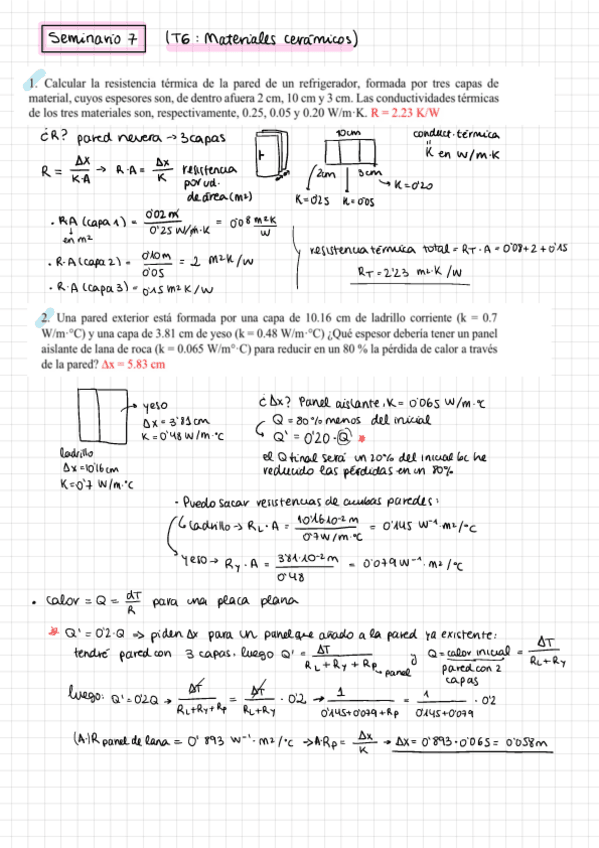 Seminario 7 (T6: Materiales cerámicos)
1. Calcular la resistencia térmica de la pared de un refrigerador, formada por tres capas de
material, cuyos espesores son, de dentro afuera 2 cm, 10 cm y 3 cm. Las conductividades térmicas
de los tres materiales son, respectivamente, 0.25, 0.05 y 0.20 W/m·K. R = 2.23 K/W
¿R? pared nevera → 3 capas
R = Δx / K·A → R·A = Δx / K resistencia
por ud.
de área (m²)
10cm
2cm 3cm
K=0'25 K=0'05 → K=0'20
conduct. térmica
K en W/m·K
· R·A (capa 1) = 0'02 m / 0'25 W/m·K = 0'08 m²K / W
↓ en m²
· R·A (capa 2) = 0'10m / 0'05 = 2 m²K/W
· R·A (capa 3) = 0'15 m²K/W
resistencia térmica total = RT·A = 0'08+2+0'15
RT = 2'23 m²·K/W
2. Una pared exterior está formada por una capa de 10.16 cm de ladrillo corriente (k = 0.7
W/m·°C) y una capa de 3.81 cm de yeso (k = 0.48 W/m·°C) ¿Qué espesor debería tener un panel
aislante de lana de roca (k = 0.065 W/m°·C) para reducir en un 80 % la pérdida de calor a través
de la pared? Δx = 5.83 cm
→ yeso
Δx = 3'81 cm
K = 0'48 W/m·°C
ladrillo
Δx = 10'16 cm
K = 0'7 W/m·°C
¿Δx? Panel aislante, K = 0'065 W/m·°C
Q = 80% menos del inicial
Q' = 0'20·Q *
el Q final será un 20% del inicial bc he
reducido las pérdidas en un 80%
- Puedo sacar resistencias de ambas paredes:
↳ Ladrillo → RL·A = 10'16·10⁻² m / 0'7 W/m·°C = 0'145 W⁻¹·m²/°C
yeso → Ry·A = 3'81·10⁻² m / 0'48 = 0'079 W⁻¹·m²/°C
· calor = Q = dT / R para una placa plana
* Q' = 0'2·Q ⇒ piden Δx para un panel que añado a la pared ya existente:
tendré pared con 3 capas, luego Q' = ΔT / RL + Ry + Rp → panel y Q = calor inicial / pared con 2 capas = ΔT / RL + Ry
luego: Q' = 0'2Q → ΔT / RL+Ry+Rp = ΔT / RL+Ry · 0'2 → 1 / 0'145+0'079+Rp = 1 / 0'145+0'079 · 0'2
(A·)R panel de lana = 0'893 W⁻¹·m²/°C → A·Rp = Δx / K → Δx = 0'893·0'065 = 0'058m